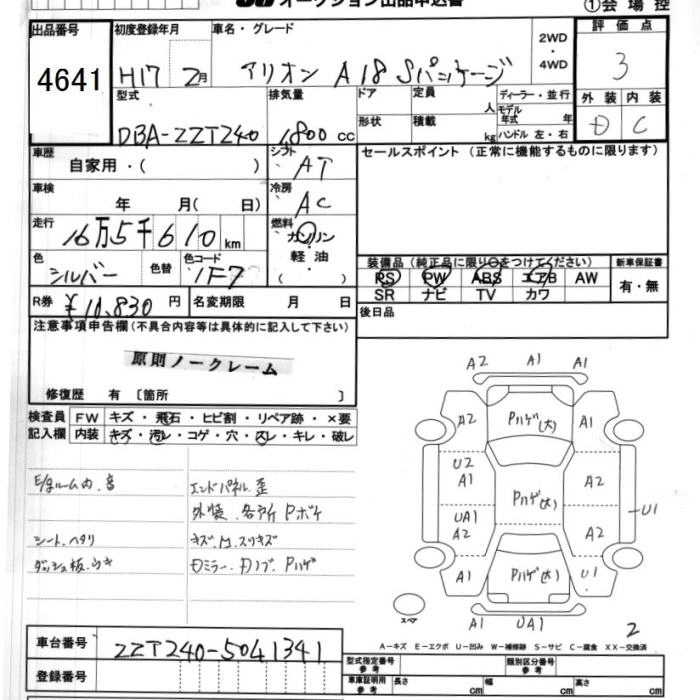 オークション出品申込書
①会場控
出品番号 初度登録年月 車名・グレード 2WD・4WD 評価点
4641 H17 2月 アリオン A18 Sパッケージ 3
型式 排気量 ドア 定員 人 ディーラー・並行 外装 内装
DBA-ZZT240 1,800 cc 形状 積載 kg モデル年式 年 ハンドル 左・右 D C
車歴 自家用・( ) シフト AT セールスポイント(正常に機能するものに限ります)
車検 年 月( 日) 冷房 AC
走行 16万5千610km 燃料 ガソリン・軽油・( )
色 シルバー 色替 色コード 1F7 装備品(純正品に限り○をつけてください) 新車保証書
PS PW ABS エアB AW 有・無
R券 ¥10,830円 名変期限 月 日 SR ナビ TV カワ
注意事項申告欄(不具合内容等は具体的に記入して下さい) 後日品
原則ノークレーム
修復歴 有〔箇所 〕
検査員記入欄 FW キズ・飛石・ヒビ割・リペア跡・×要
内装 キズ・汚レ・コゲ・穴・スレ・キレ・破レ
E/gルーム内、音 エンドパネル歪
外装、各所Pボケ
シート、ヘタリ キズ、M、スリキズ
ダッシュ板、ウキ Dミラー、Dノブ、Pハゲ
A2 A1 A1
A2 Pハゲ(大) A1
U2 A1 Pハゲ(大) A2
UA1 A2 A2 U1
A1 Pハゲ(大) U1
スペア A1 UA1 2
A-キズ E-エクボ U-凹み W-補修跡 S-サビ C-腐食 XX-交換済
車台番号 ZZT240-5041341
型式指定番号 参考 類別区分番号 参考
登録番号 車庫証明用 参考 長さ cm 幅 cm 高さ cm